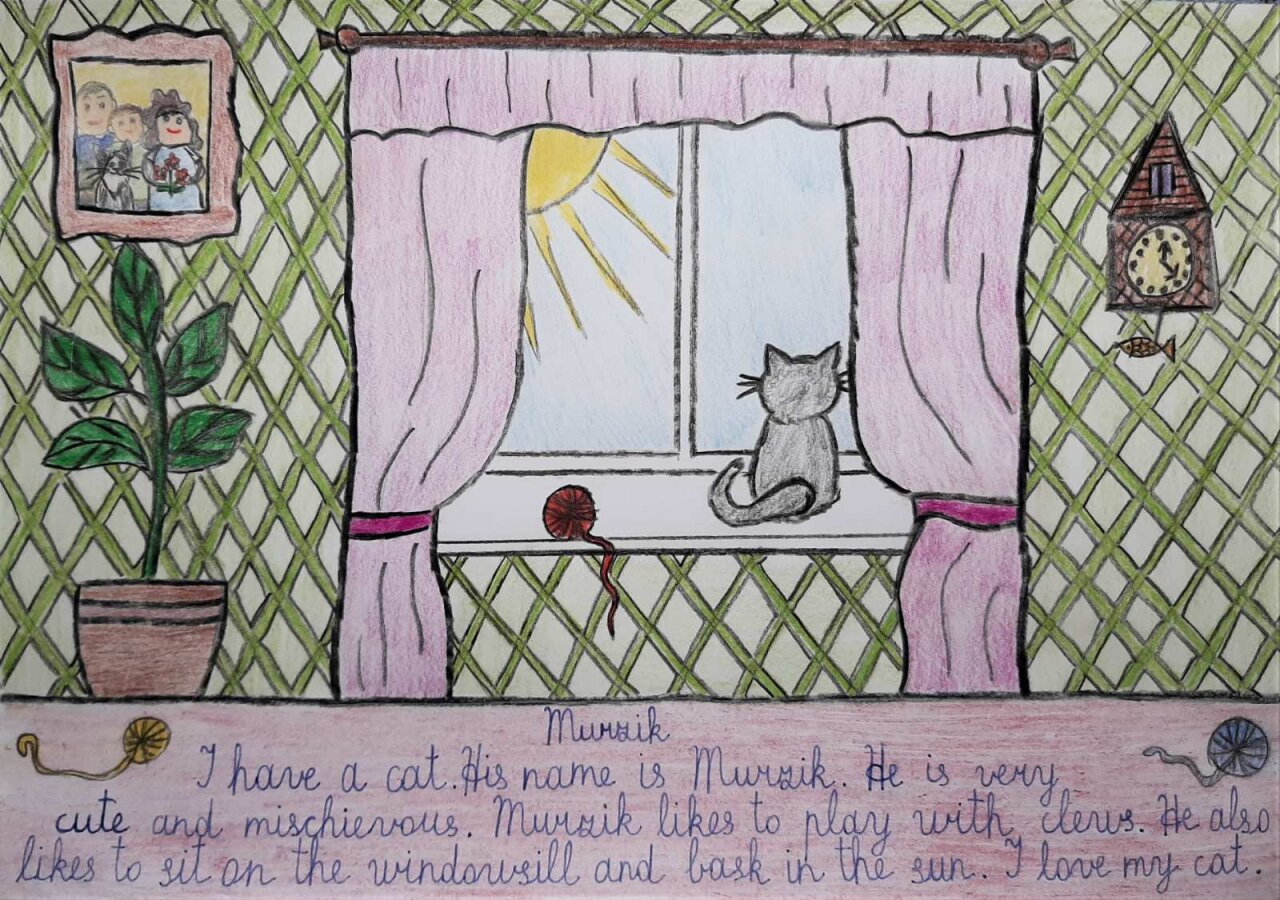 Murzik
I have a cat. His name is Murzik. He is very
cute and mischievous. Murzik likes to play with clews. He also
likes to sit on the windowsill and bask in the sun. I love my cat.